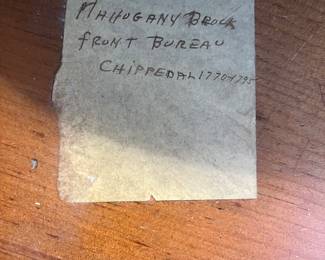 MAHOGANY BLOCK
FRONT BUREAU
CHIPPEDAL 1770-1795